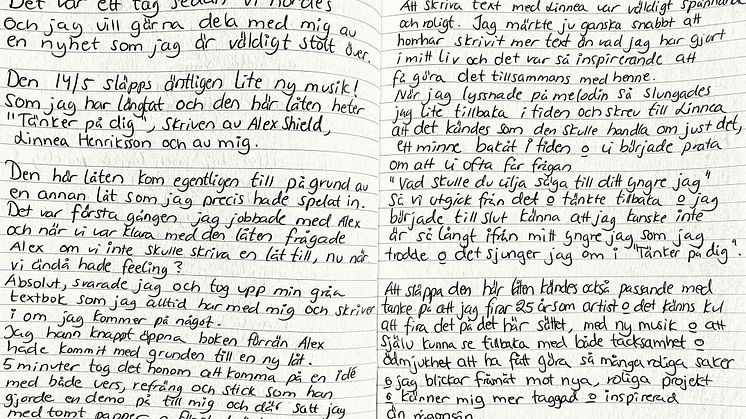 Det var ett tag sedan vi hördes
Och jag vill gärna dela med mig av
en nyhet som jag är väldigt stolt över.
Den 14/5 släpps äntligen lite ny musik!
Som jag har längtat och den här låten heter
"Tänker på dig", skriven av Alex Shield,
Linnea Henriksson och av mig.
Den här låten kom egentligen till på grund av
en annan låt som jag precis hade spelat in.
Det var första gången jag jobbade med Alex
och när vi var klara med den låten frågade
Alex om vi inte skulle skriva en låt till, nu när
vi ändå hade feeling?
Absolut, svarade jag och tog upp min gråa
textbok som jag alltid har med mig och skriver
i om jag kommer på något.
Jag hann knappt öppna boken förrän Alex
hade kommit med grunden till en ny låt.
5 minuter tog det honom att komma på en idé
med både vers, refräng och stick som han
gjorde en demo på till mig och där satt jag
med tomt papper
Att skriva text med Linnea var väldigt spännande
och roligt. Jag märkte ju ganska snabbt att
hon har skrivit mer text än vad jag har gjort
i mitt liv och det var så inspirerande att
få göra det tillsammans med henne.
När jag lyssnade på melodin så slungades
jag lite tillbaka i tiden och skrev till Linnea
att det kändes som den skulle handla om just det,
ett minne bakåt i tiden o vi började prata
om att vi ofta får frågan
"Vad skulle du vilja säga till ditt yngre jag"
Så vi utgick från det o tänkte tillbaka o jag
började till slut känna att jag kanske inte
är så långt ifrån mitt yngre jag som jag
trodde o det sjunger jag om i "Tänker på dig".
Att släppa den här låten kändes också passande med
tanke på att jag firar 25 år som artist o det känns kul
att fira det på det här sättet, med ny musik o att
själv kunna se tillbaka med både tacksamhet o
ödmjukhet att ha fått göra så många roliga saker
o jag blickar framåt mot nya, roliga projekt
o känner mig mer taggad o inspirerad
än någonsin